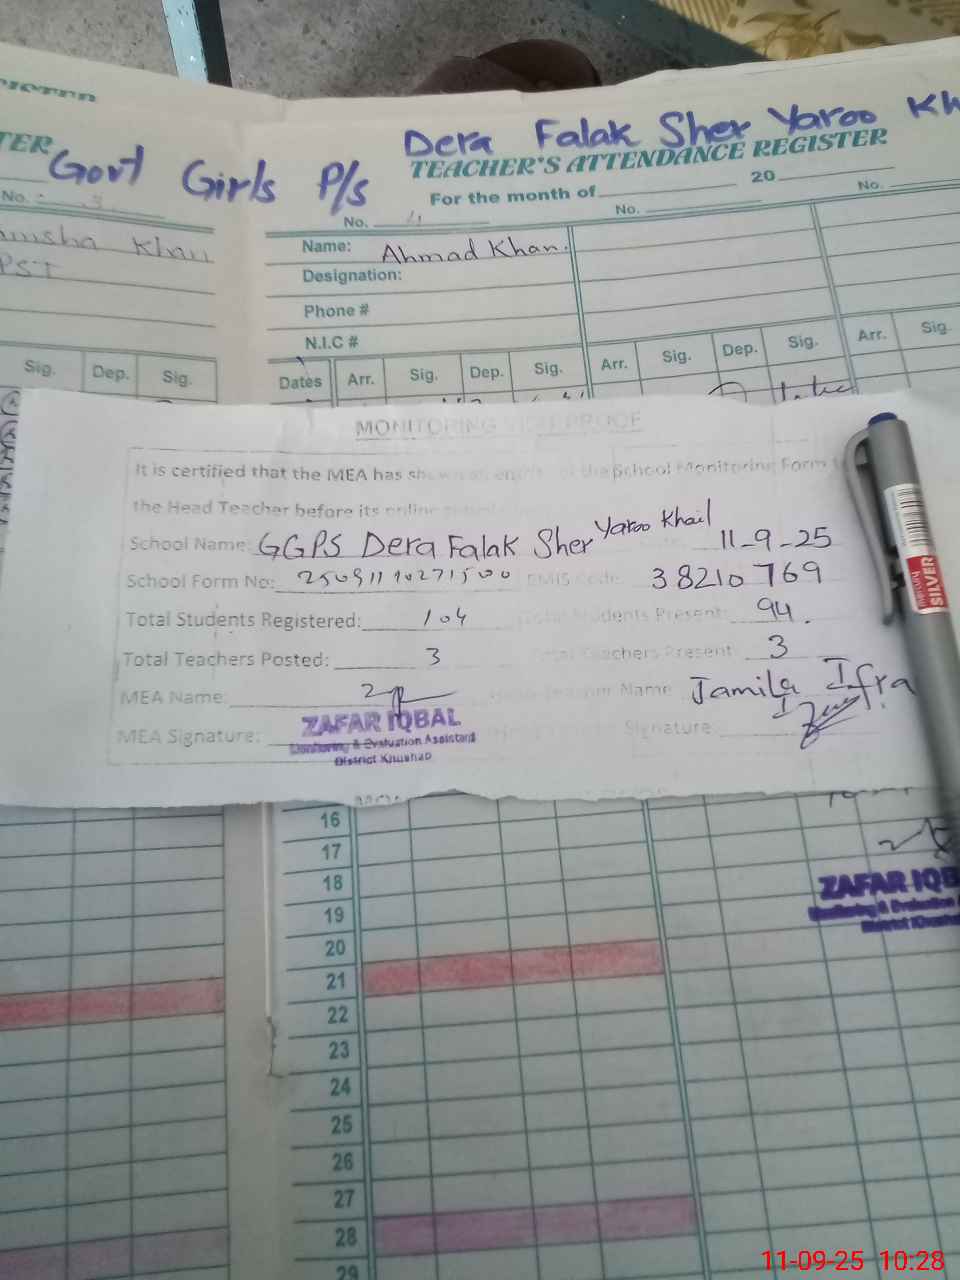 Dera Falak Sher Yaroo Kh
Govt Girls P/s
TEACHER'S ATTENDANCE REGISTER
For the month of 20
No. No. No. No.
Khan
Name: Ahmad Khan.
PST
Designation:
Phone #
N.I.C #
Sig. Dep. Sig. Dates Arr. Sig. Dep. Sig. Arr. Sig. Dep. Sig. Arr. Sig.
MONITORING VISIT PROOF
It is certified that the MEA has shown an entries of the School Monitoring Form to
the Head Teacher before its online
School Name: GGPS Dera Falak Sher Yaroo Khail Date: 11-9-25
School Form No: 25091110271500 EMIS Code: 38210769
Total Students Registered: 104 Total Students Present: 94.
Total Teachers Posted: 3 Total Teachers Present: 3
MEA Name: Head Teacher Name Jamila Ifra
MEA Signature: Signature
ZAFAR IQBAL
Monitoring & Evaluation Assistant
District Khushab
16
17
18
ZAFAR IQB
Monitoring & Evaluation
District Khushab
19
20
21
22
23
24
25
26
27
28
29
11-09-25 10:28